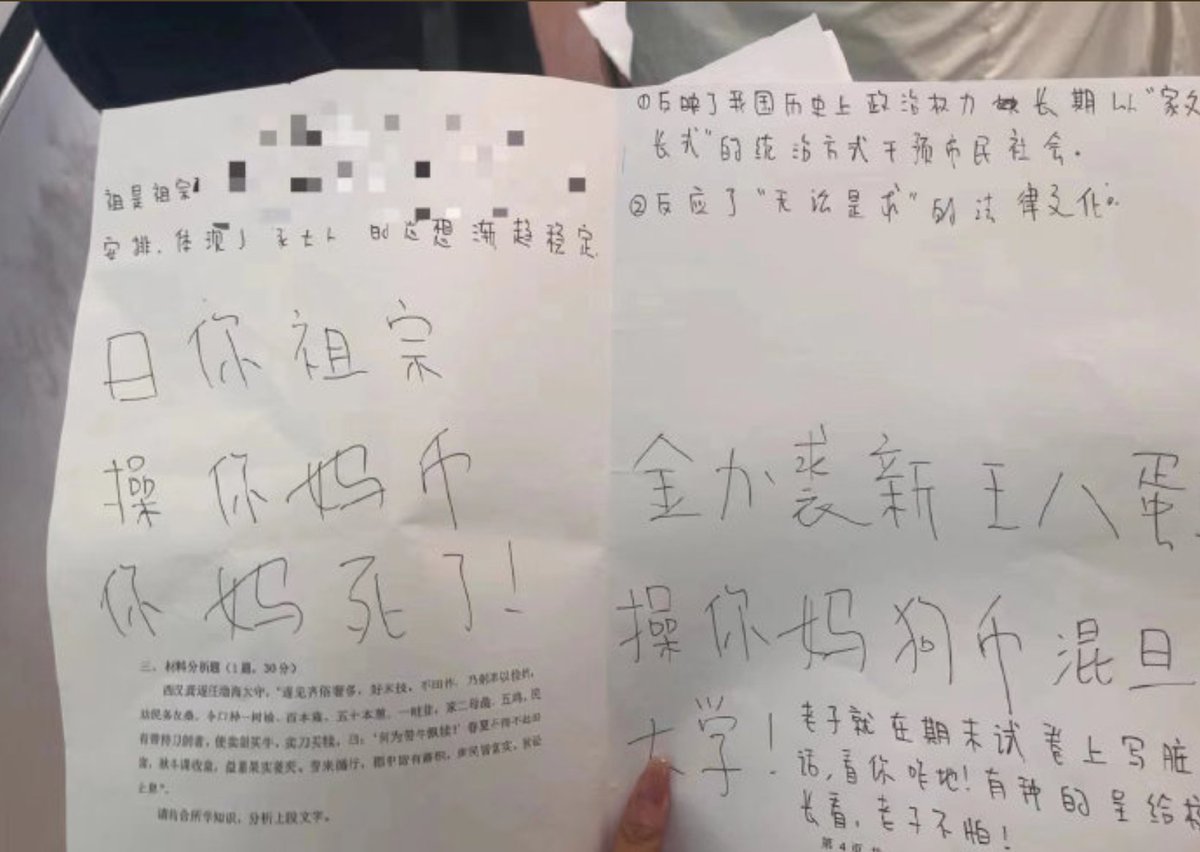 祖是祖宗
安排.体现了 的思想渐趋稳定.
日你祖宗
操你妈币
你妈死了!
三、材料分析题(1题,30分)
西汉龚遂任渤海太守,“遂见齐俗奢侈,好末技,不田作,乃躬率以俭约,
劝民务农桑,令口种一树榆、百本薤、五十本葱、一畦韭,家二母彘、五鸡,民
有带持刀剑者,使卖剑买牛,卖刀买犊,曰:‘何为带牛佩犊!’春夏不得不趋田
亩,秋冬课收敛,益蓄果实菱芡。劳来循行,郡中皆有蓄积,吏民皆富实。狱讼
止息”。
请结合所学知识,分析上段文字。
①反映了我国历史上政治权力 长期以“家父
长式”的统治方式干预市民社会.
②反应了“无法是求”的法律文化.
金力裘新王八蛋
操你妈狗币混旦
大学!
老子就在期末试卷上写脏
话,看你咋地!有种的呈给校
长看,老子不怕!
第4页 共